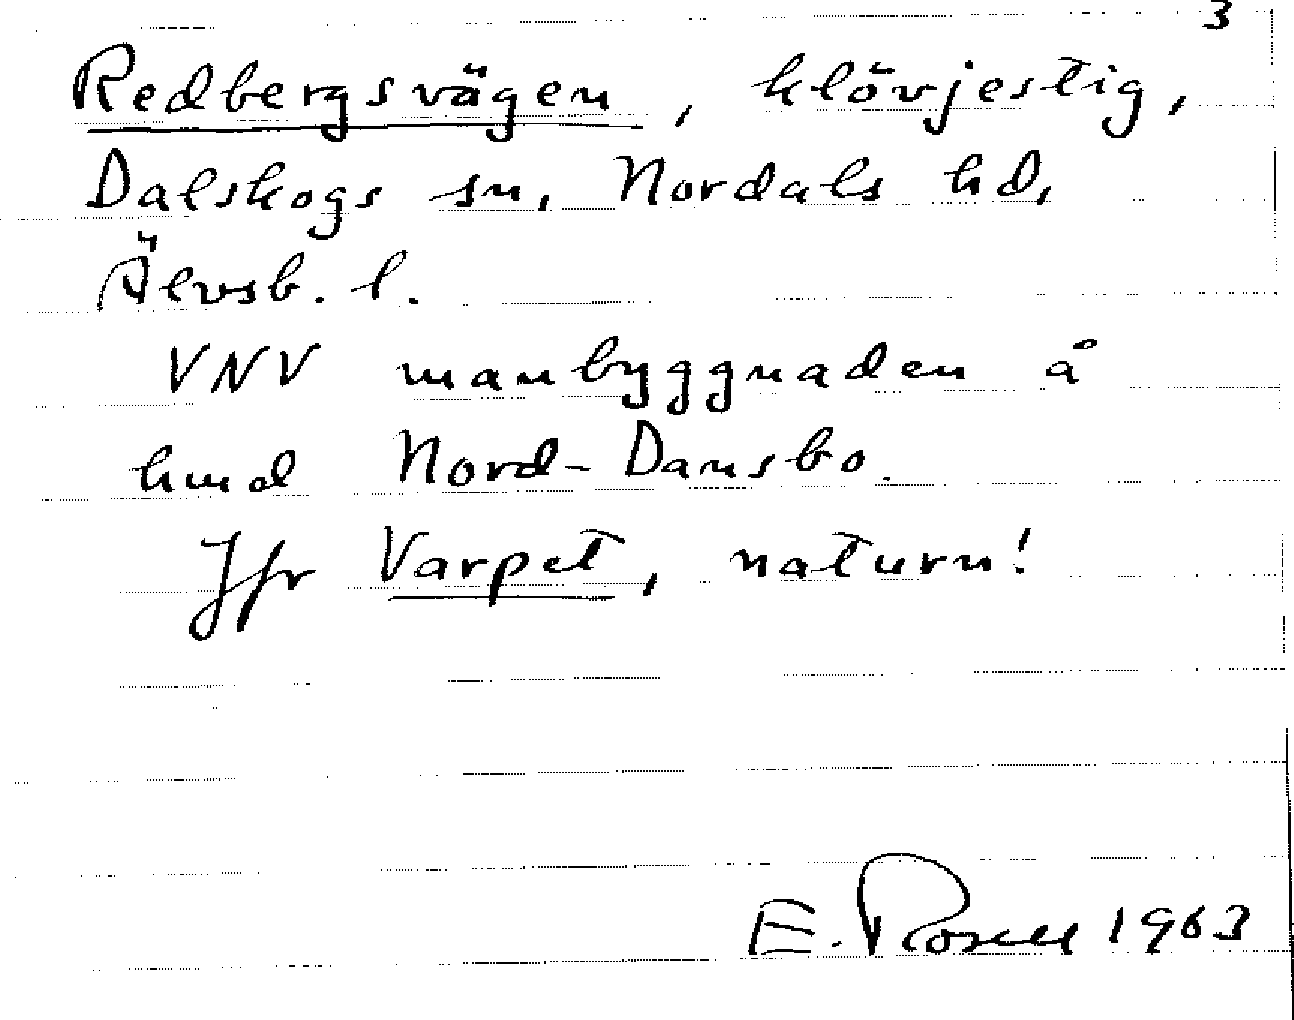 3
Redbergsvägen, klövjestig,
Dalskogs sn, Nordals hd,
Älvsb. l.
VNV manbyggnaden å
hmd Nord-Dansbo.
Jfr Varpet, naturn!
E. Rosell 1963